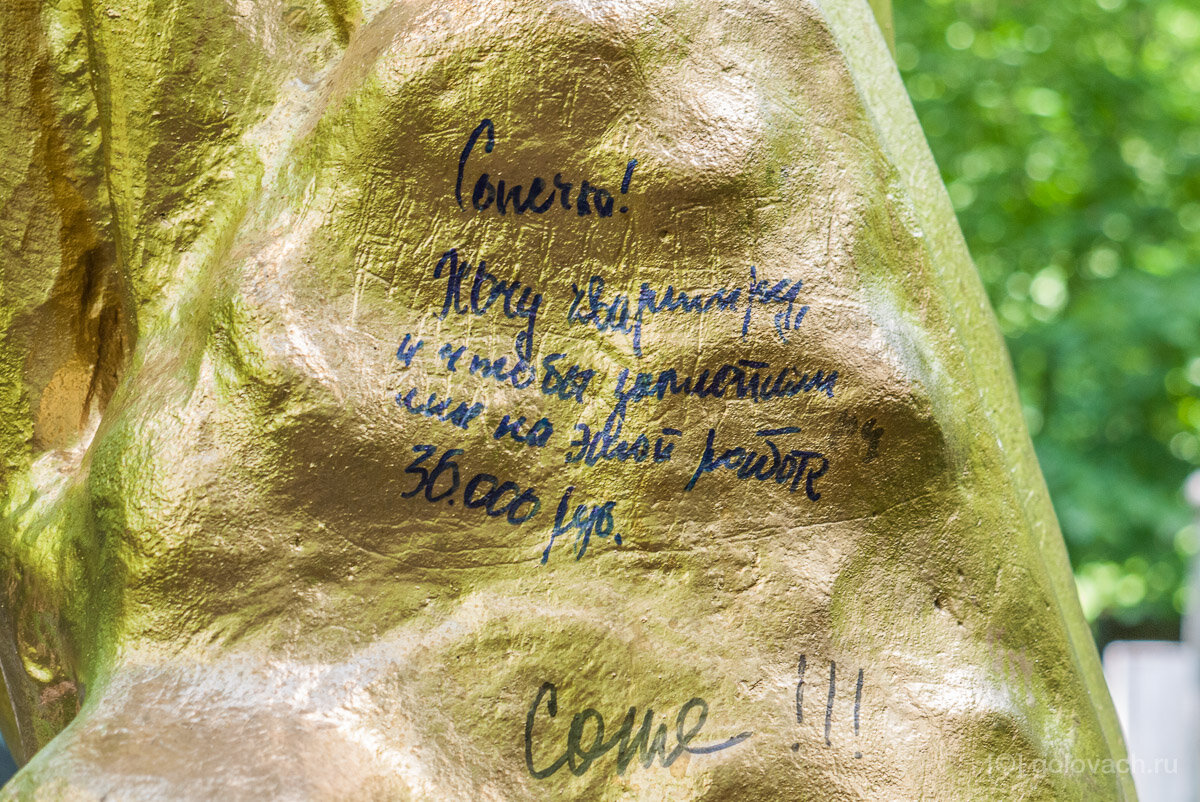 Сонечка!
Хочу квартиру,
и чтобы заплатили
мне на этой работе
36.000 руб.
Соне !!!
golovach.ru